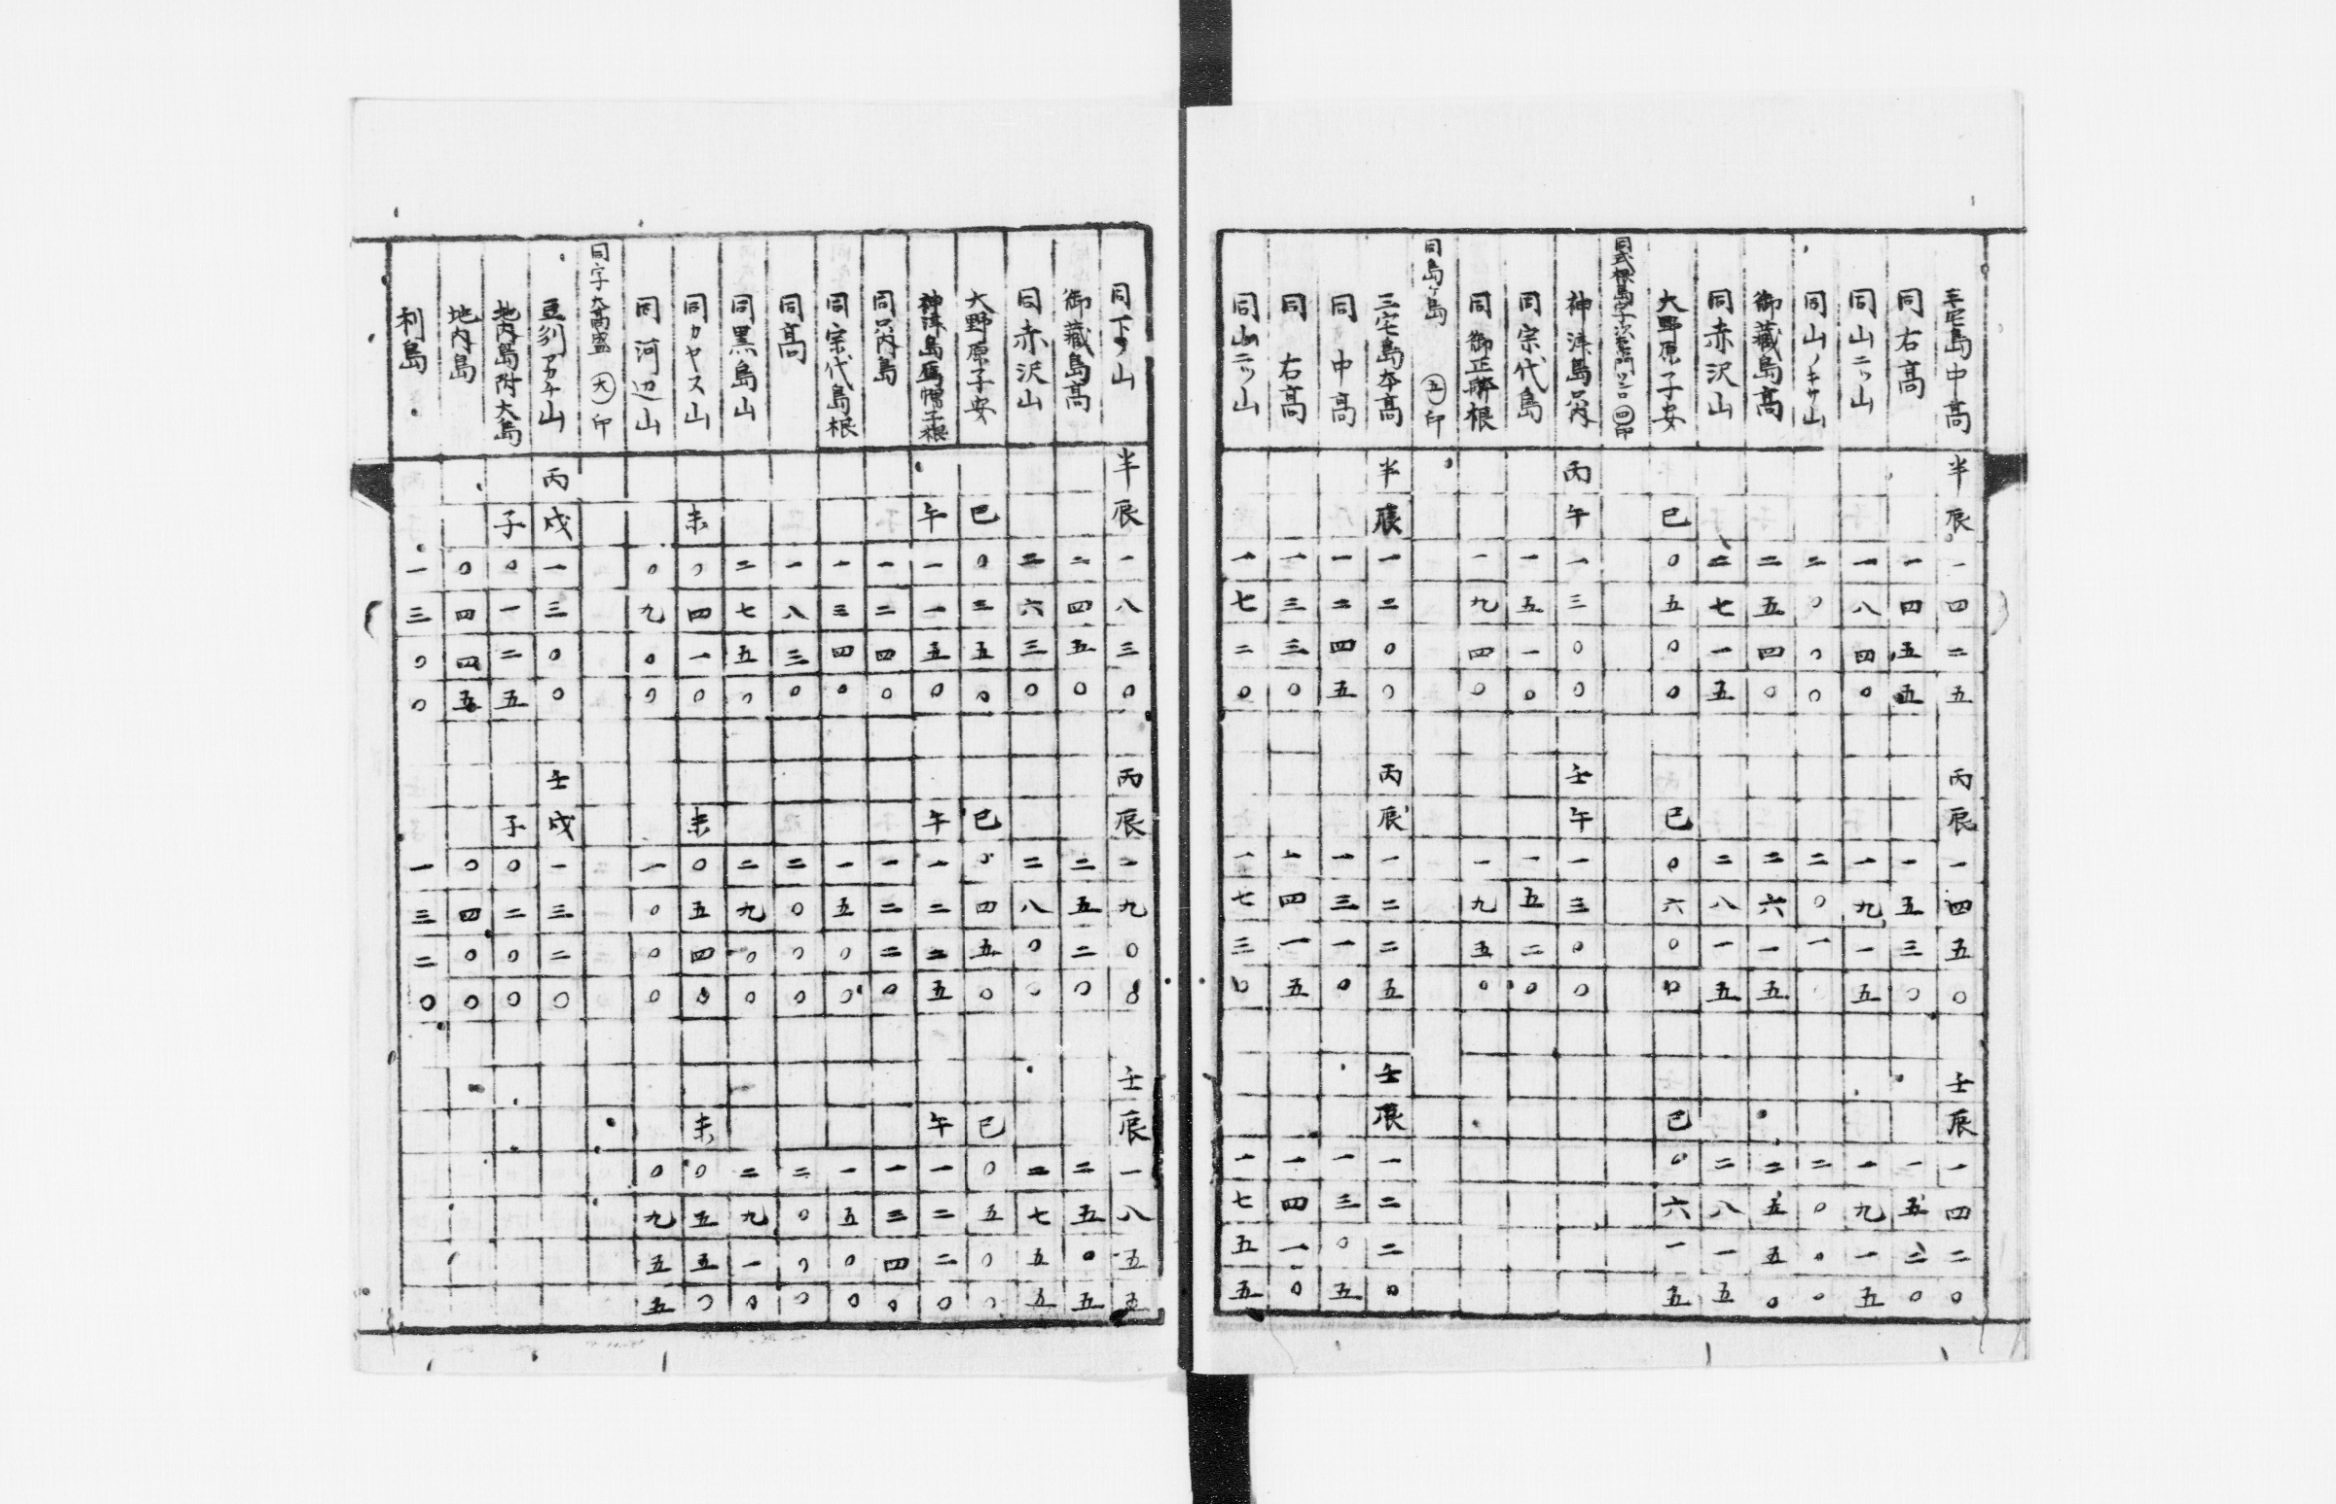 三宅島中高 半辰 一四二五 丙辰 一四五〇 壬辰 一四二〇
同右高 一四五五 一五三〇 一五二〇
同山二ツ山 一八四〇 一九一五 一九一五
同山ノキサ山 二〇〇〇 二〇一〇 二〇〇〇
御蔵島高 二五四〇 二六一五 二五五〇
同赤沢山 二七一五 二八一五 二八一五
大野原子安 巳 〇五〇〇 巳 〇六〇〇 巳 〇六一五
同式根島字 四印
神津島只内 丙午 一三〇〇 壬午 一三〇〇
同宗代島 一五一〇 一五二〇
同御正躰根 一九四〇 一九五〇
同島々島 五印
三宅島本高 半辰 一二〇〇 丙辰 一二二五 壬辰 一二二〇
同中高 一二四五 一三一〇 一三〇五
同右高 一三三〇 一四一五 一四一〇
同山二ツ山 一七二〇 一七三〇 一七五五
同下タ山 半辰 一八三〇 丙辰 一九〇〇 壬辰 一八五五
御蔵島高 二四五〇 二五二〇 二五〇五
同赤沢山 二六三〇 二八〇〇 二七五五
大野原子安 巳 〇三五〇 巳 〇四五〇 巳 〇五〇〇
神津島烏帽子根 午 一一五〇 午 一二二五 午 一二二〇
同只内島 一二四〇 一二二〇 一三四〇
同宗代島根 一三四〇 一五〇〇 一五〇〇
同高 一八三〇 二〇〇〇 二〇〇〇
同黒島山 二七五〇 二九〇〇 二九一〇
同カヤス山 未 〇四一〇 未 〇五四〇 未 〇五五〇
同河辺山 〇九〇〇 一〇〇〇 〇九五五
同字大高盛 大印
豆列アカチ山 丙戌 一三〇〇 壬戌 一三二〇
地内島附大島 子 〇一二五 子 〇二〇〇
地内島 〇四四五 〇四〇〇
利島 一三〇〇 一三二〇